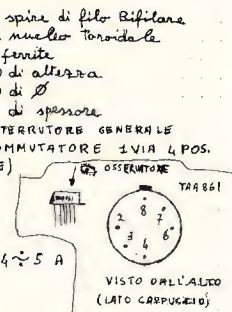 spire di filo Bifilare
nucleo Toroidale
ferrite
di altezza
di Ø
di spessore
TERRUTORE GENERALE
OMMUTATORE 1 VIA 4 POS.
E)
OSSERVATORE
TAA861
8
2 7
3 6
4
4÷5 A
VISTO DALL'ALTO
(LATO CAPPUCCIO)